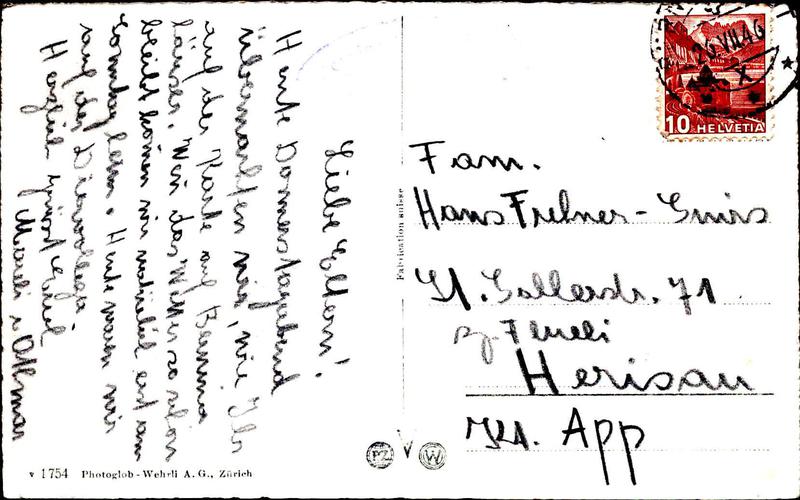 Liebe Eltern!
Heute Donnerstagabend
übernachten wir, wie Ihr
auf der Karte auf Bernina
Häuser. Wen das Wetter so schön
bleibt können wir natürlich erst am
Sonntag heim. Heute waren wir
auf der Diavolezza.
Herzlich grüsst Euch
Marli & Othmar
Fam.
Hans Frehner-
St. Gallerstr. 71
z. Flueli
Herisau
Kt. App
26.VII.46
X
10 HELVETIA
Fabrication suisse
v 1754 Photoglob-Wehrli A. G., Zürich
PZ V W